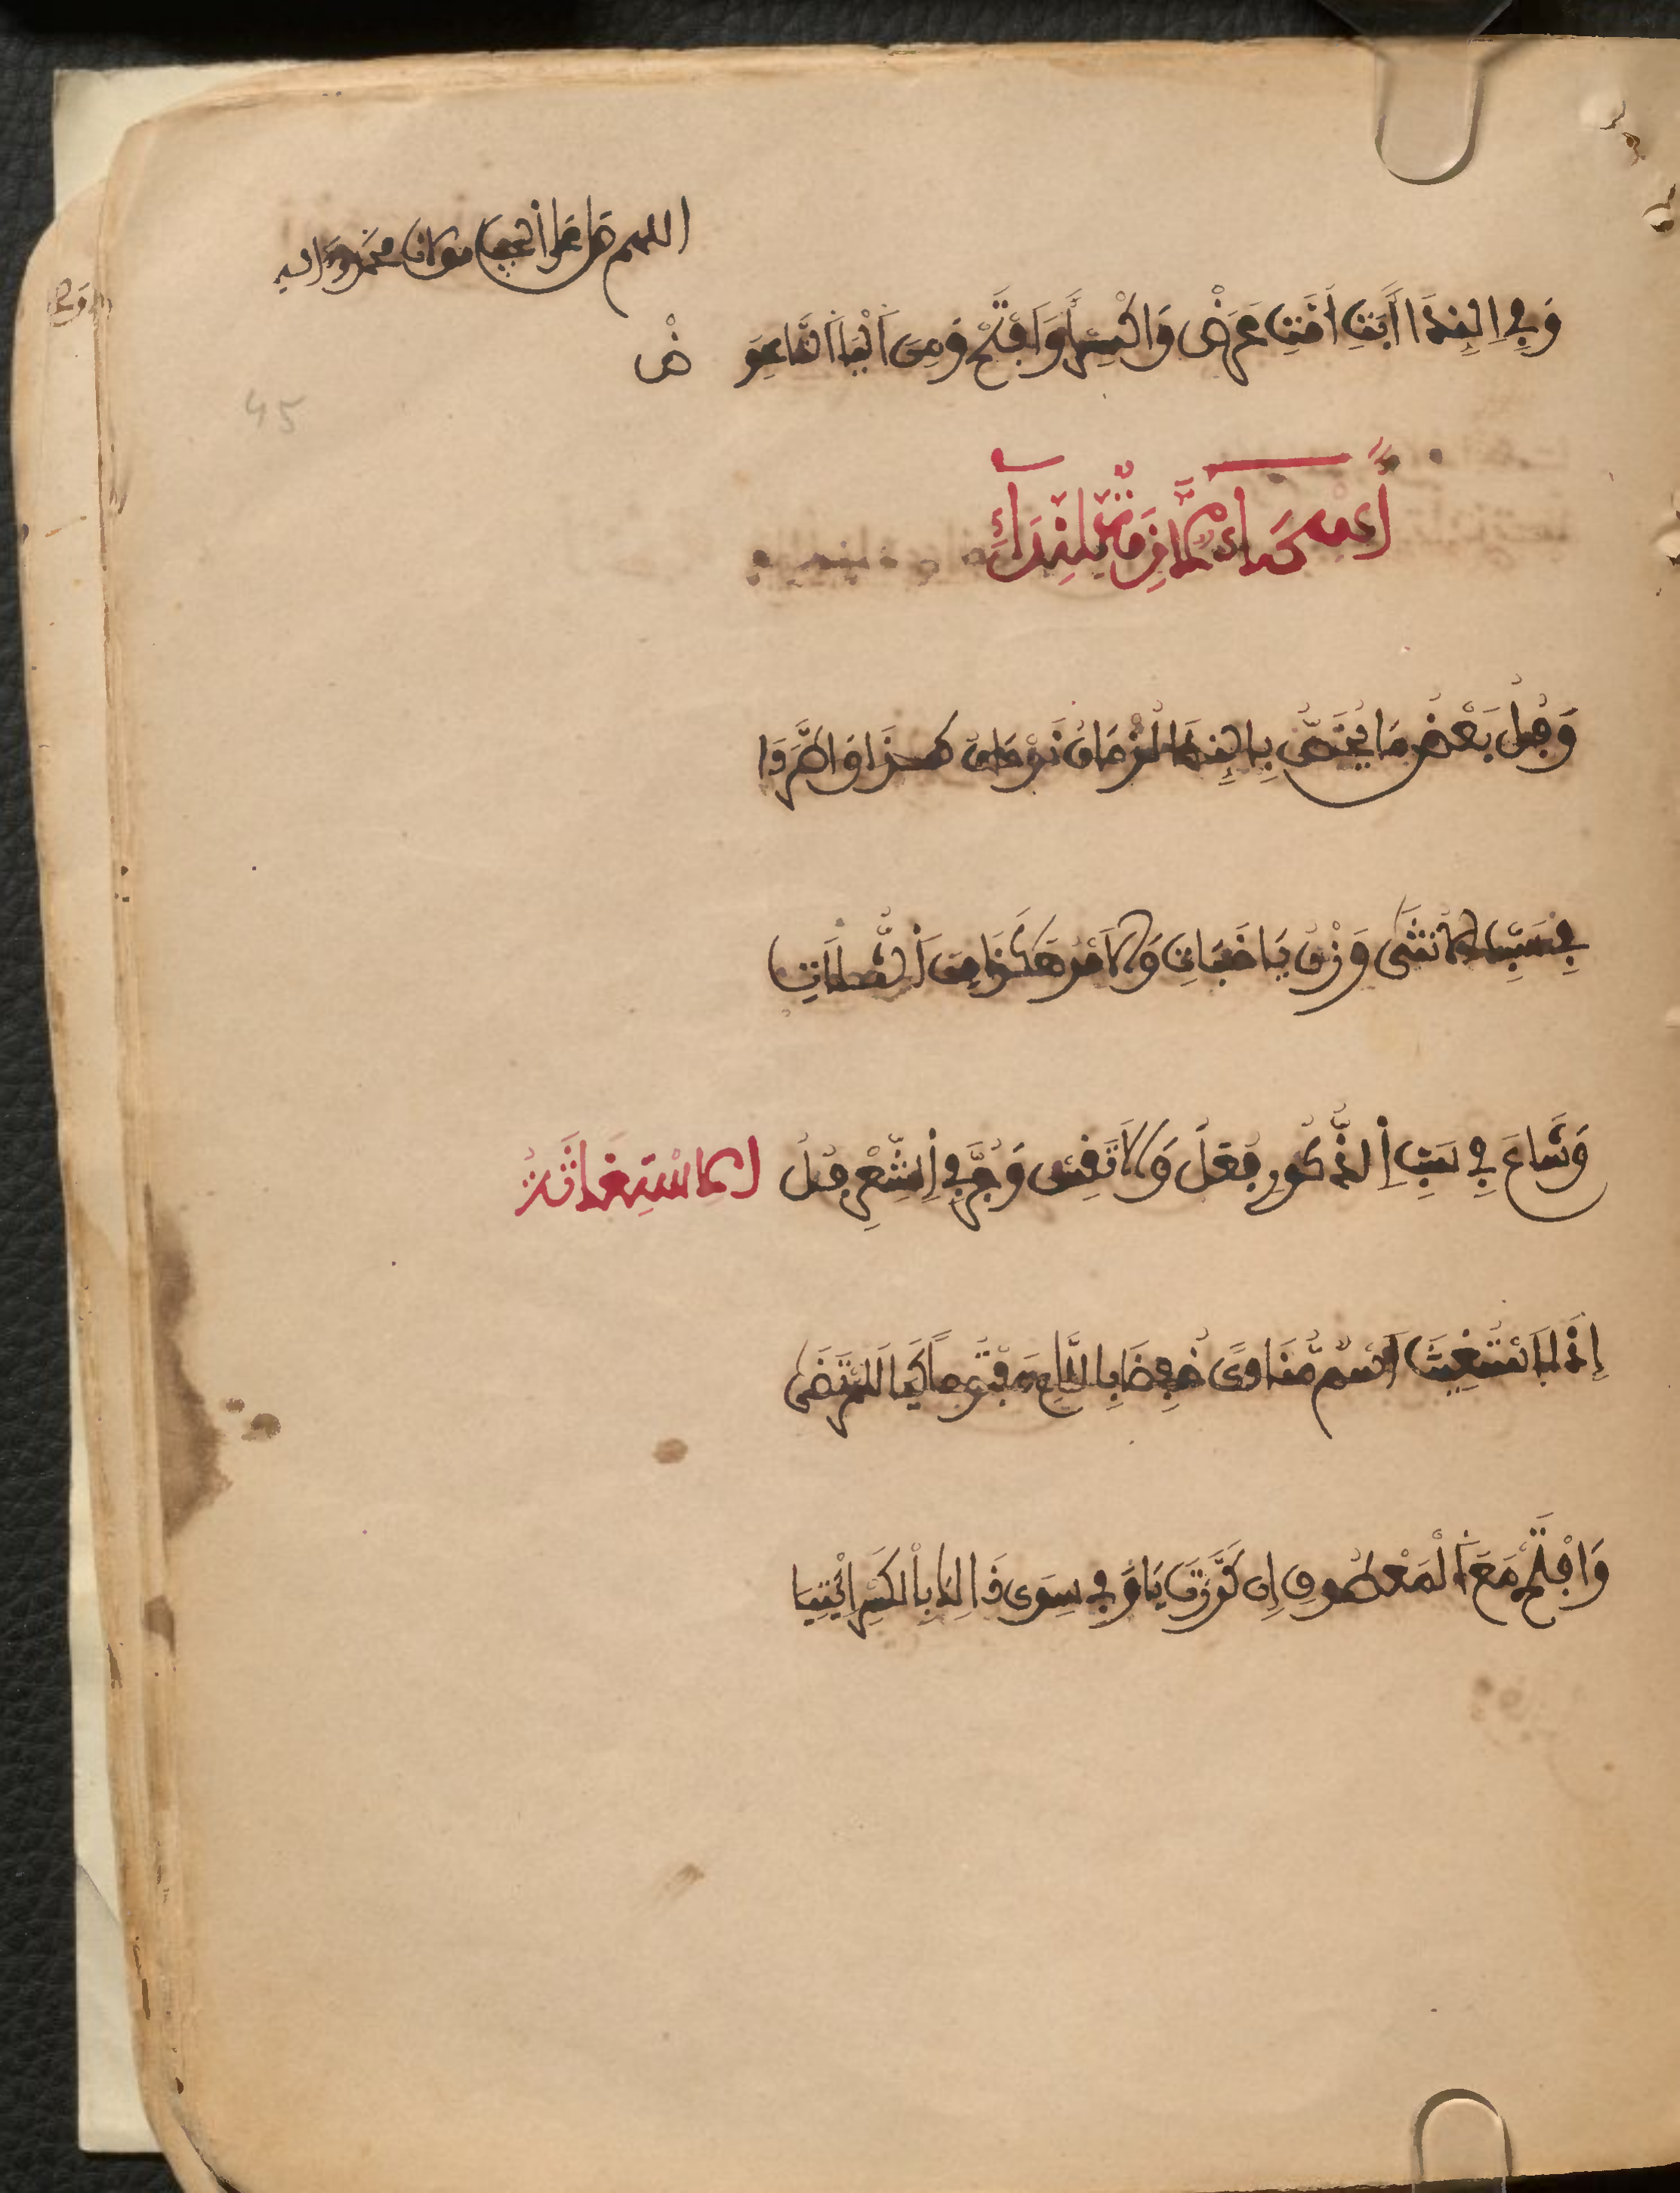 اللهم صل على الحبيب مولانا محمد وءاله
وَفِي اِلنِّدَا أَبَتِ أُمَّتِ عَرَضْ وَاكْسِرْ أَوِ افْتَحْ وَمِنَ اَلْيَا اَلتَّا عِوَضْ
أَسْمَاءٌ لَازَمَتِ النِّدَاءَ
وَفُلُ بَعْضُ مَا يُخَصُّ بِالنِّدَا لُؤْمَانُ نَوْمَانُ كَذَا وَاطَّرَدَا
فِي سَبِّ الُانْثَى وَزْنُ يَا خَبَاثِ وَالَامْرُ هَكَذَا مِنَ اَلثُّلَاثِي
وَشَاعَ فِي سَبِّ اِلذُّكُورِ فُعَلُ وَلَا تَقِسْ وَجُرَّ فِي اِلشِّعْرِ فُلُ الِاسْتِغَاثَةُ
إِذَا اَسْتُغِيثَ اَسْمٌ مُنَادىً خُفِضَا بِاللَّامِ مَفْتُوحاً كَيَا لَلْمُرْتَضَى
وَافْتَحْ مَعَ اَلْمَعْطُوفِ إِن كَرَّرْتَ يَا وَفِي سِوَى ذَالِكَ بِالْكَسْرِ اِئْتِيَا
45